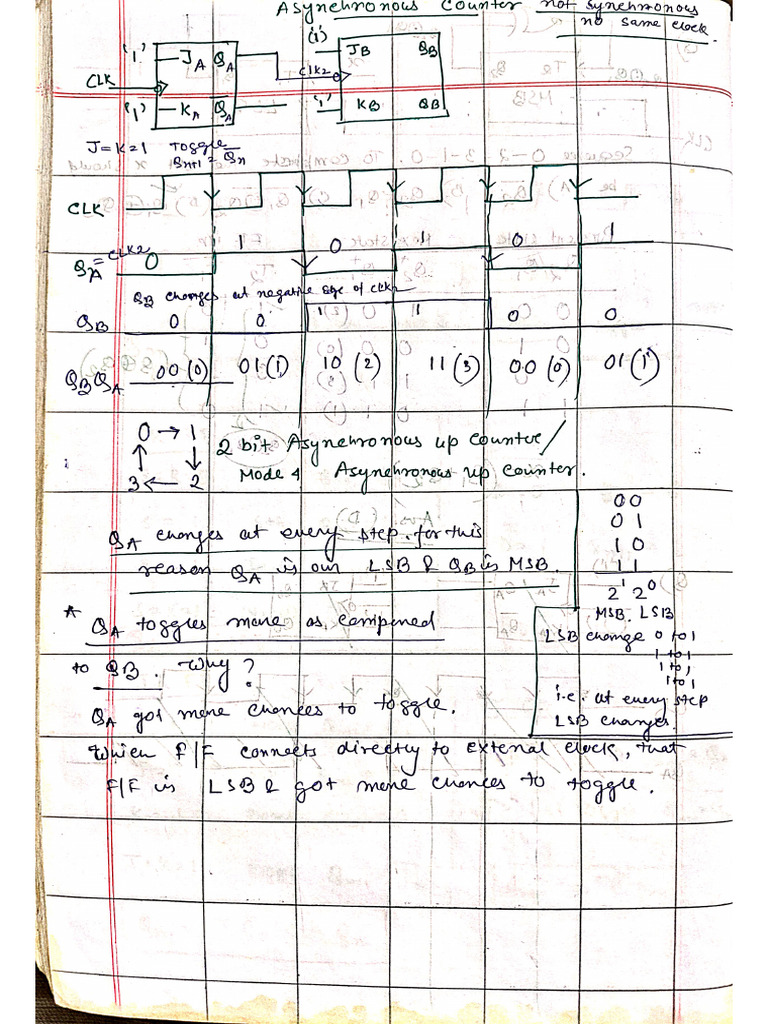 Asynchronous Counter not synchronous
no same clock.
'1' JA QA (1) JB QB
CLK CLK2
'1' KA Q̅A '1' KB QB
J=K=1 Toggle
Qn+1 = Q̅n
CLK
QA = CLK2 0 1 0 1 0 1
QB changes at negative edge of CLK2
QB 0 0 1 1 0 0
QBQA 00(0) 01(1) 10(2) 11(3) 00(0) 01(1)
0 → 1
↑ ↓
3 ← 2
2 bit Asynchronous up counter/
Mode 4 Asynchronous up counter.
QA changes at every step. for this
reason QA is our LSB & QB is MSB.
00
01
10
11
2¹ 2⁰
MSB. LSB
LSB change 0 to 1
1 to 1
1 to 1
1 to 1
i.e. at every step
LSB changes.
* QA toggles more as compared
to QB. Why?
QA got more chances to toggle.
Which F/F connects directly to external clock, that
F/F is LSB & got more chances to toggle.